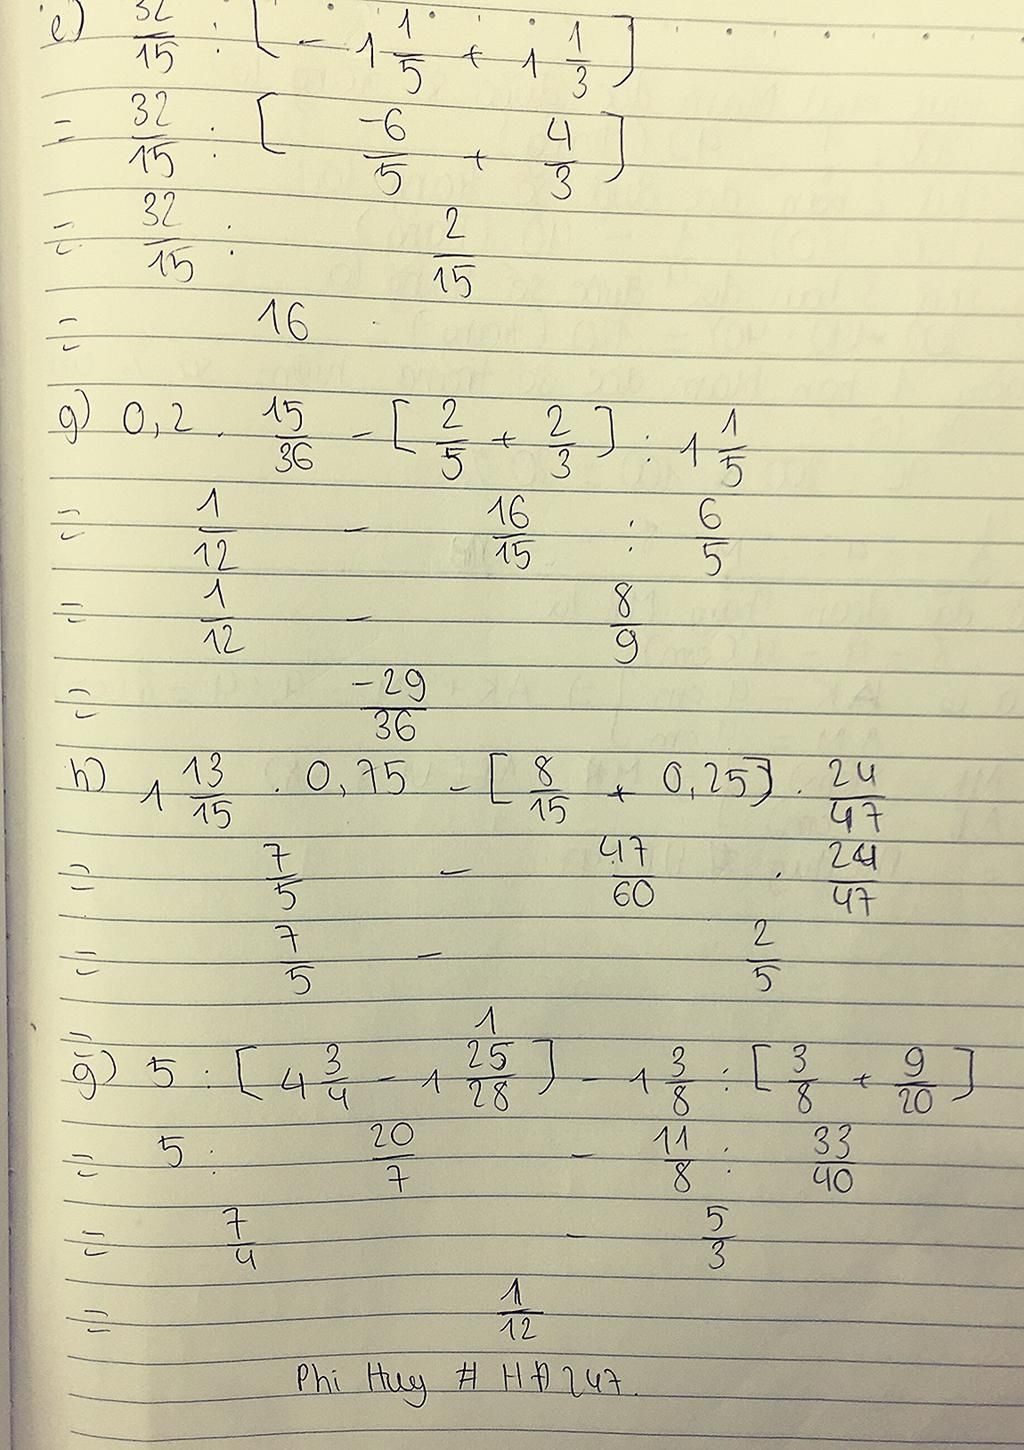 e) 32/15 : [ - 1 1/5 + 1 1/3 ]
= 32/15 : [ -6/5 + 4/3 ]
= 32/15 : 2/15
= 16
g) 0,2 . 15/36 - [ 2/5 + 2/3 ] : 1 1/5
= 1/12 - 16/15 : 6/5
= 1/12 - 8/9
= -29/36
h) 1 13/15 . 0,75 - [ 8/15 + 0,25 ] . 24/47
= 7/5 - 47/60 . 24/47
= 7/5 - 2/5
= 1
g) 5 : [ 4 3/4 - 1 25/28 ] - 1 3/8 : [ 3/8 + 9/20 ]
= 5 : 20/7 - 11/8 : 33/40
= 7/4 - 5/3
= 1/12
Phi Huy # HĐ247.